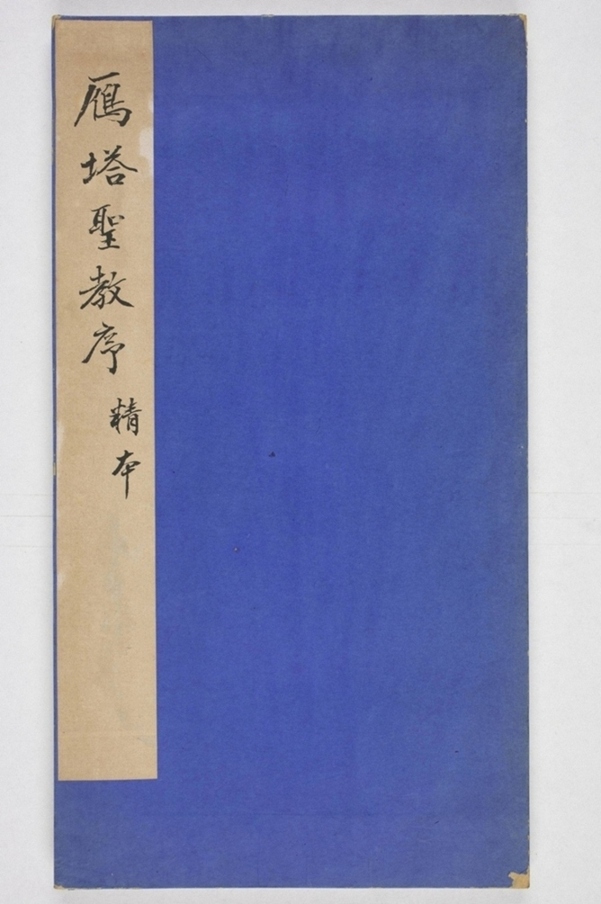 鴈塔聖教序
精本